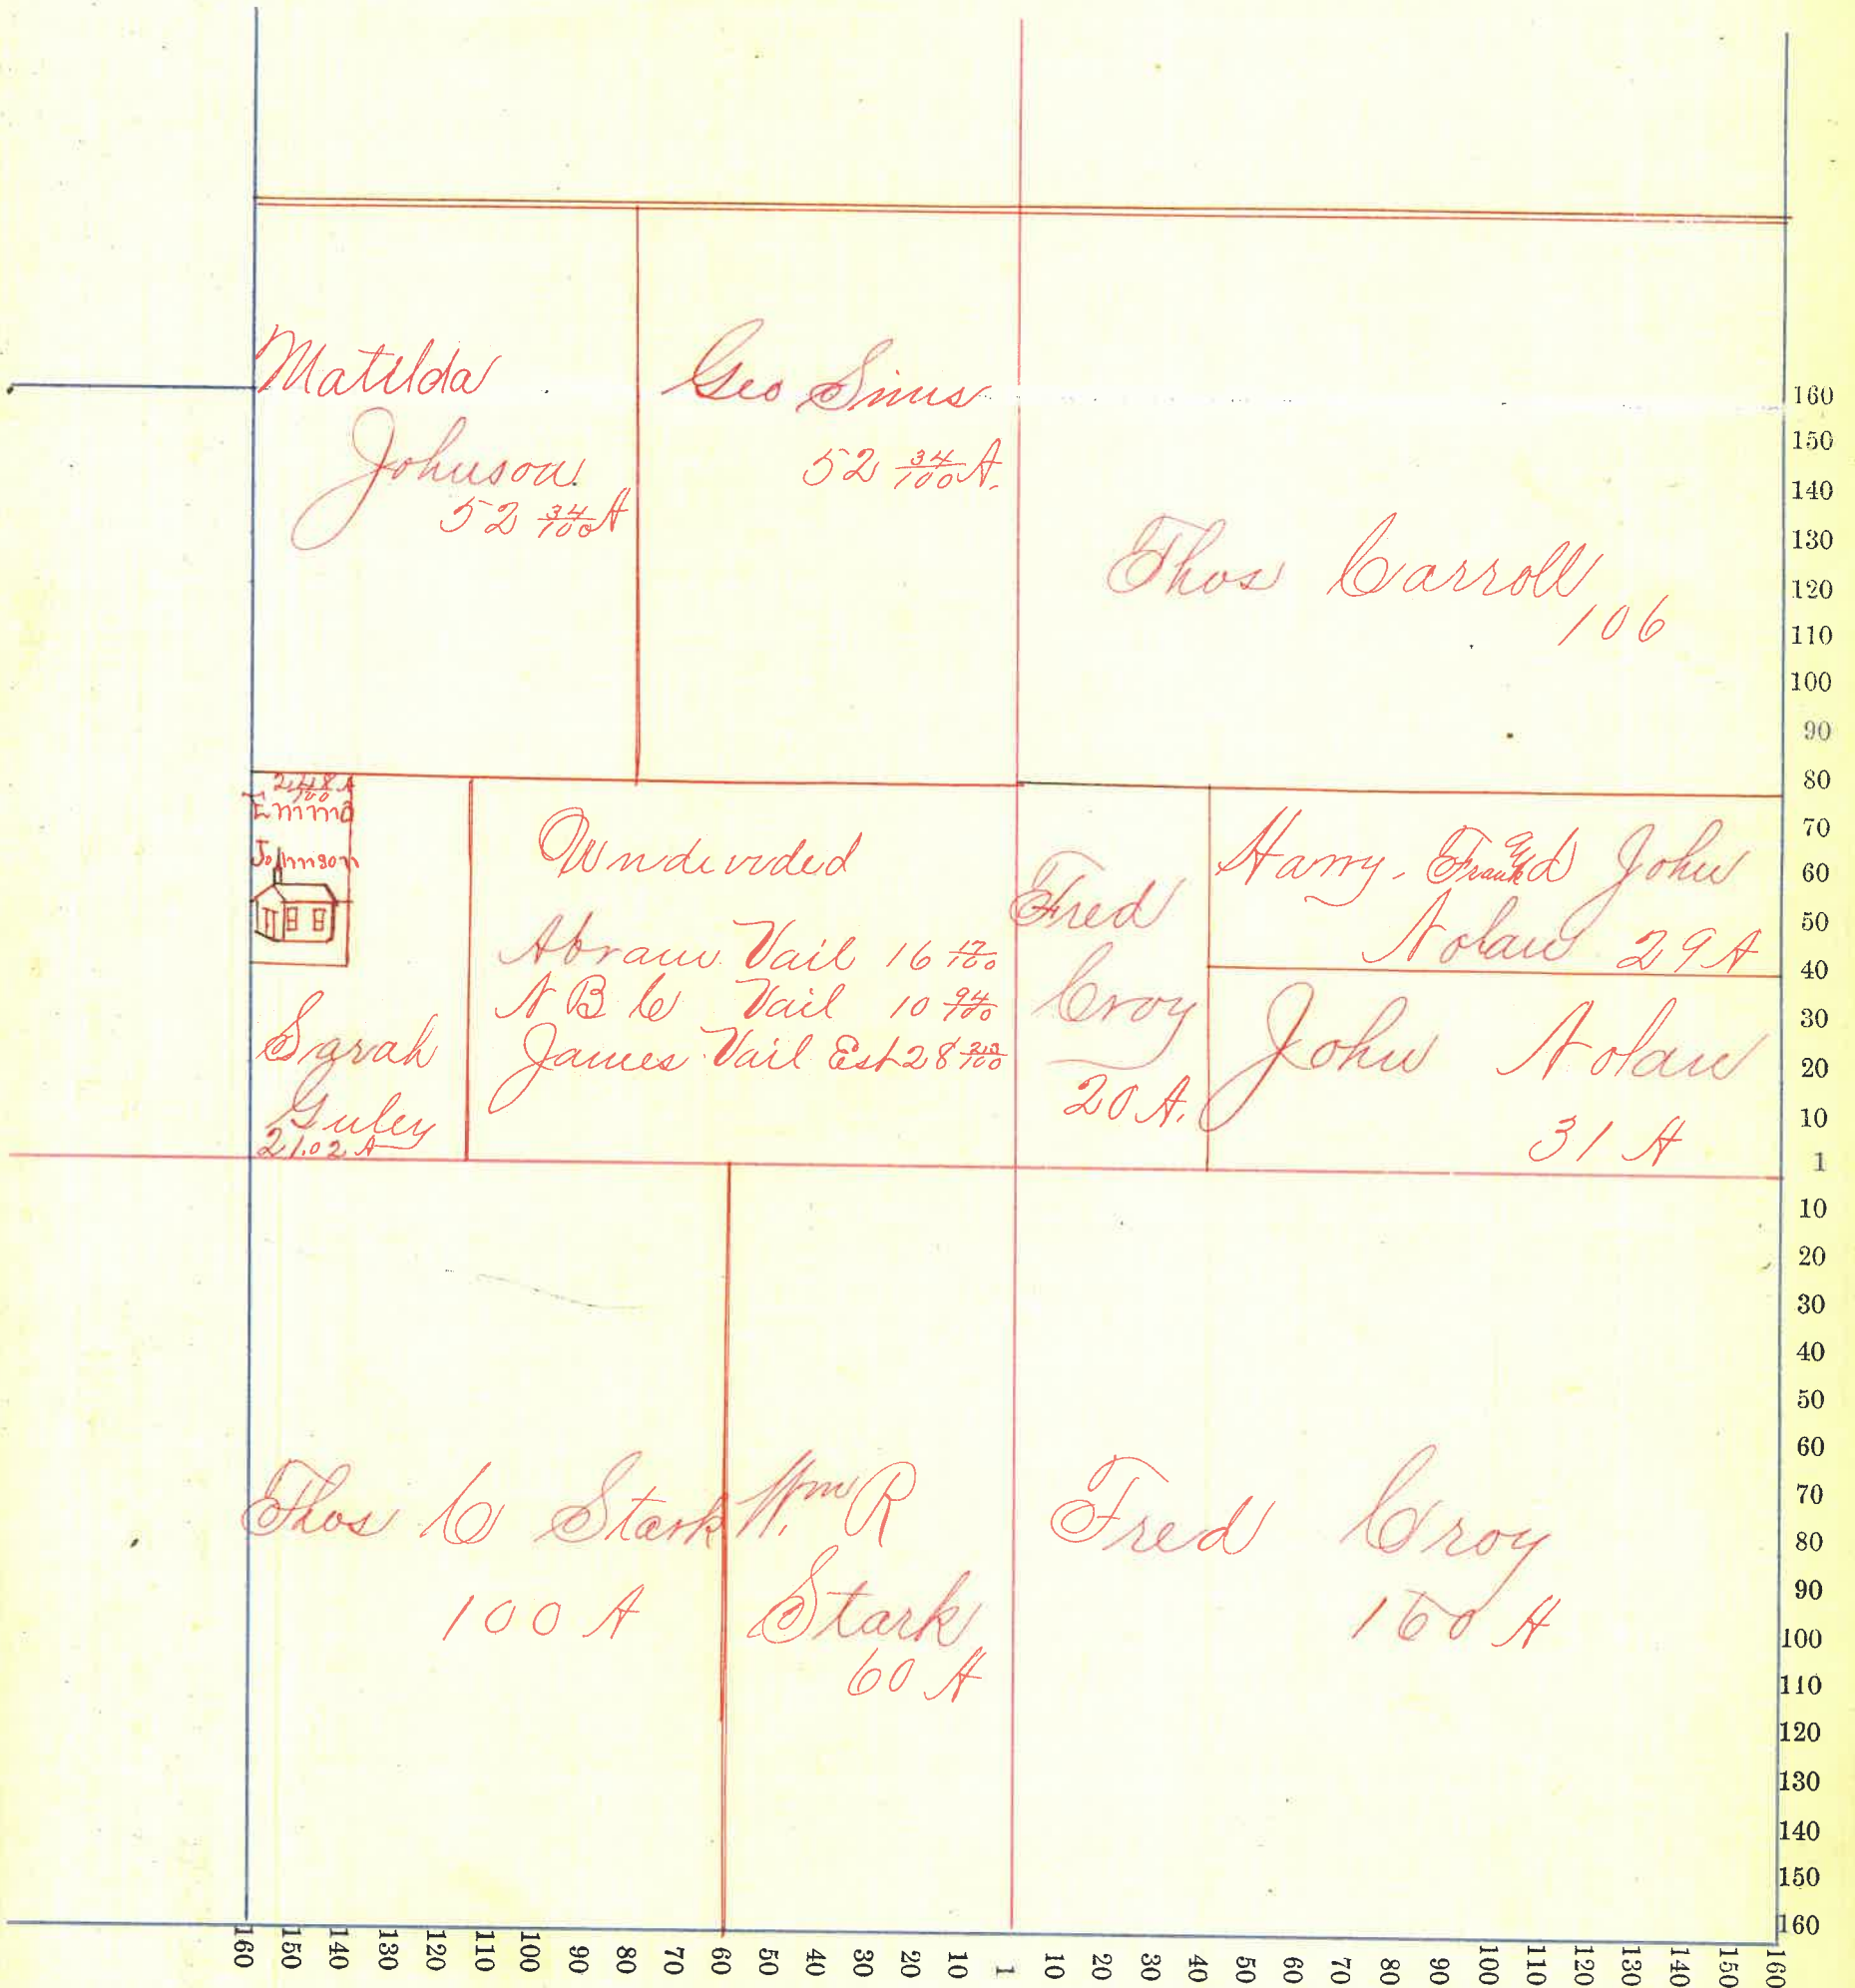 Matilda
Johnson
52 34/100 A
Geo Sims
52 34/100 A.
Thos Carroll
106
2 48/100 A
Emma
Johnson
Sarah
Guley
21.02 A
Undevided
Abram Vail 16 17/100
N B C Vail 10 94/100
James Vail Est 28
Fred
Croy
20 A.
Harry. Frank and John
Nolan 29 A
John Nolan
31 A
Thos C Stark
100 A
Wm R
Stark
60 A
Fred Croy
160 A
160
150
140
130
120
110
100
90
80
70
60
50
40
30
20
10
1
10
20
30
40
50
60
70
80
90
100
110
120
130
140
150
160
160 150 140 130 120 110 100 90 80 70 60 50 40 30 20 10 1 10 20 30 40 50 60 70 80 90 100 110 120 130 140 150 160